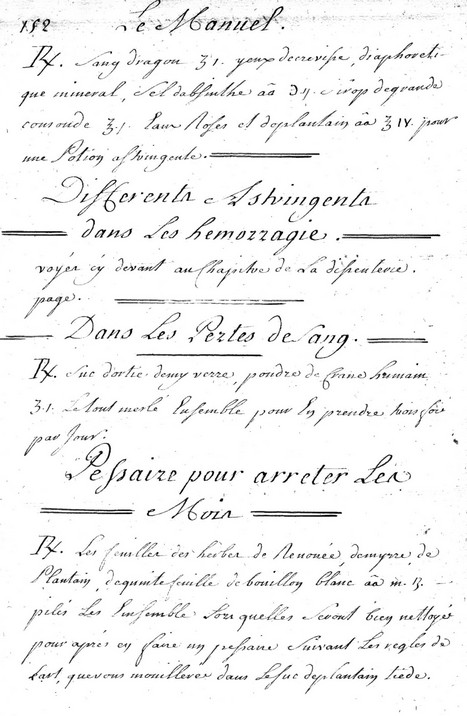 152 Le Manuel.
℞. Sang dragon ʒ1. yeux decrevisse, diaphoreti-
que mineral, Sel dabsinthe āā ℈ij sirop de grande
consoude ℥.1. Eaux Roses et deplantain āā ℥ IV. pour
une Potion astringente.
Differents Astringents
dans Les hemorragie.
voyés cy devant au Chapitre de La dissenterie.
page.
Dans Les Pertes de Sang.
℞. Suc dortie demy verre, poudre de Crane humain
ʒ.1. Le tout meslé Ensemble pour En prendre trois fois
par Jour.
Pessaire pour arreter Les
Mois
℞. Les feuilles des herbes de Renouée, demyrre de
Plantain, de quinte feuille de bouillon blanc āā m.
pilés Les Ensemble Lorsquelles Seront bien nettoyé
pour aprés en faire un pessaire Suivant Les regles de
Lart, que vous mouillerés dans Le Suc deplantain tiede.